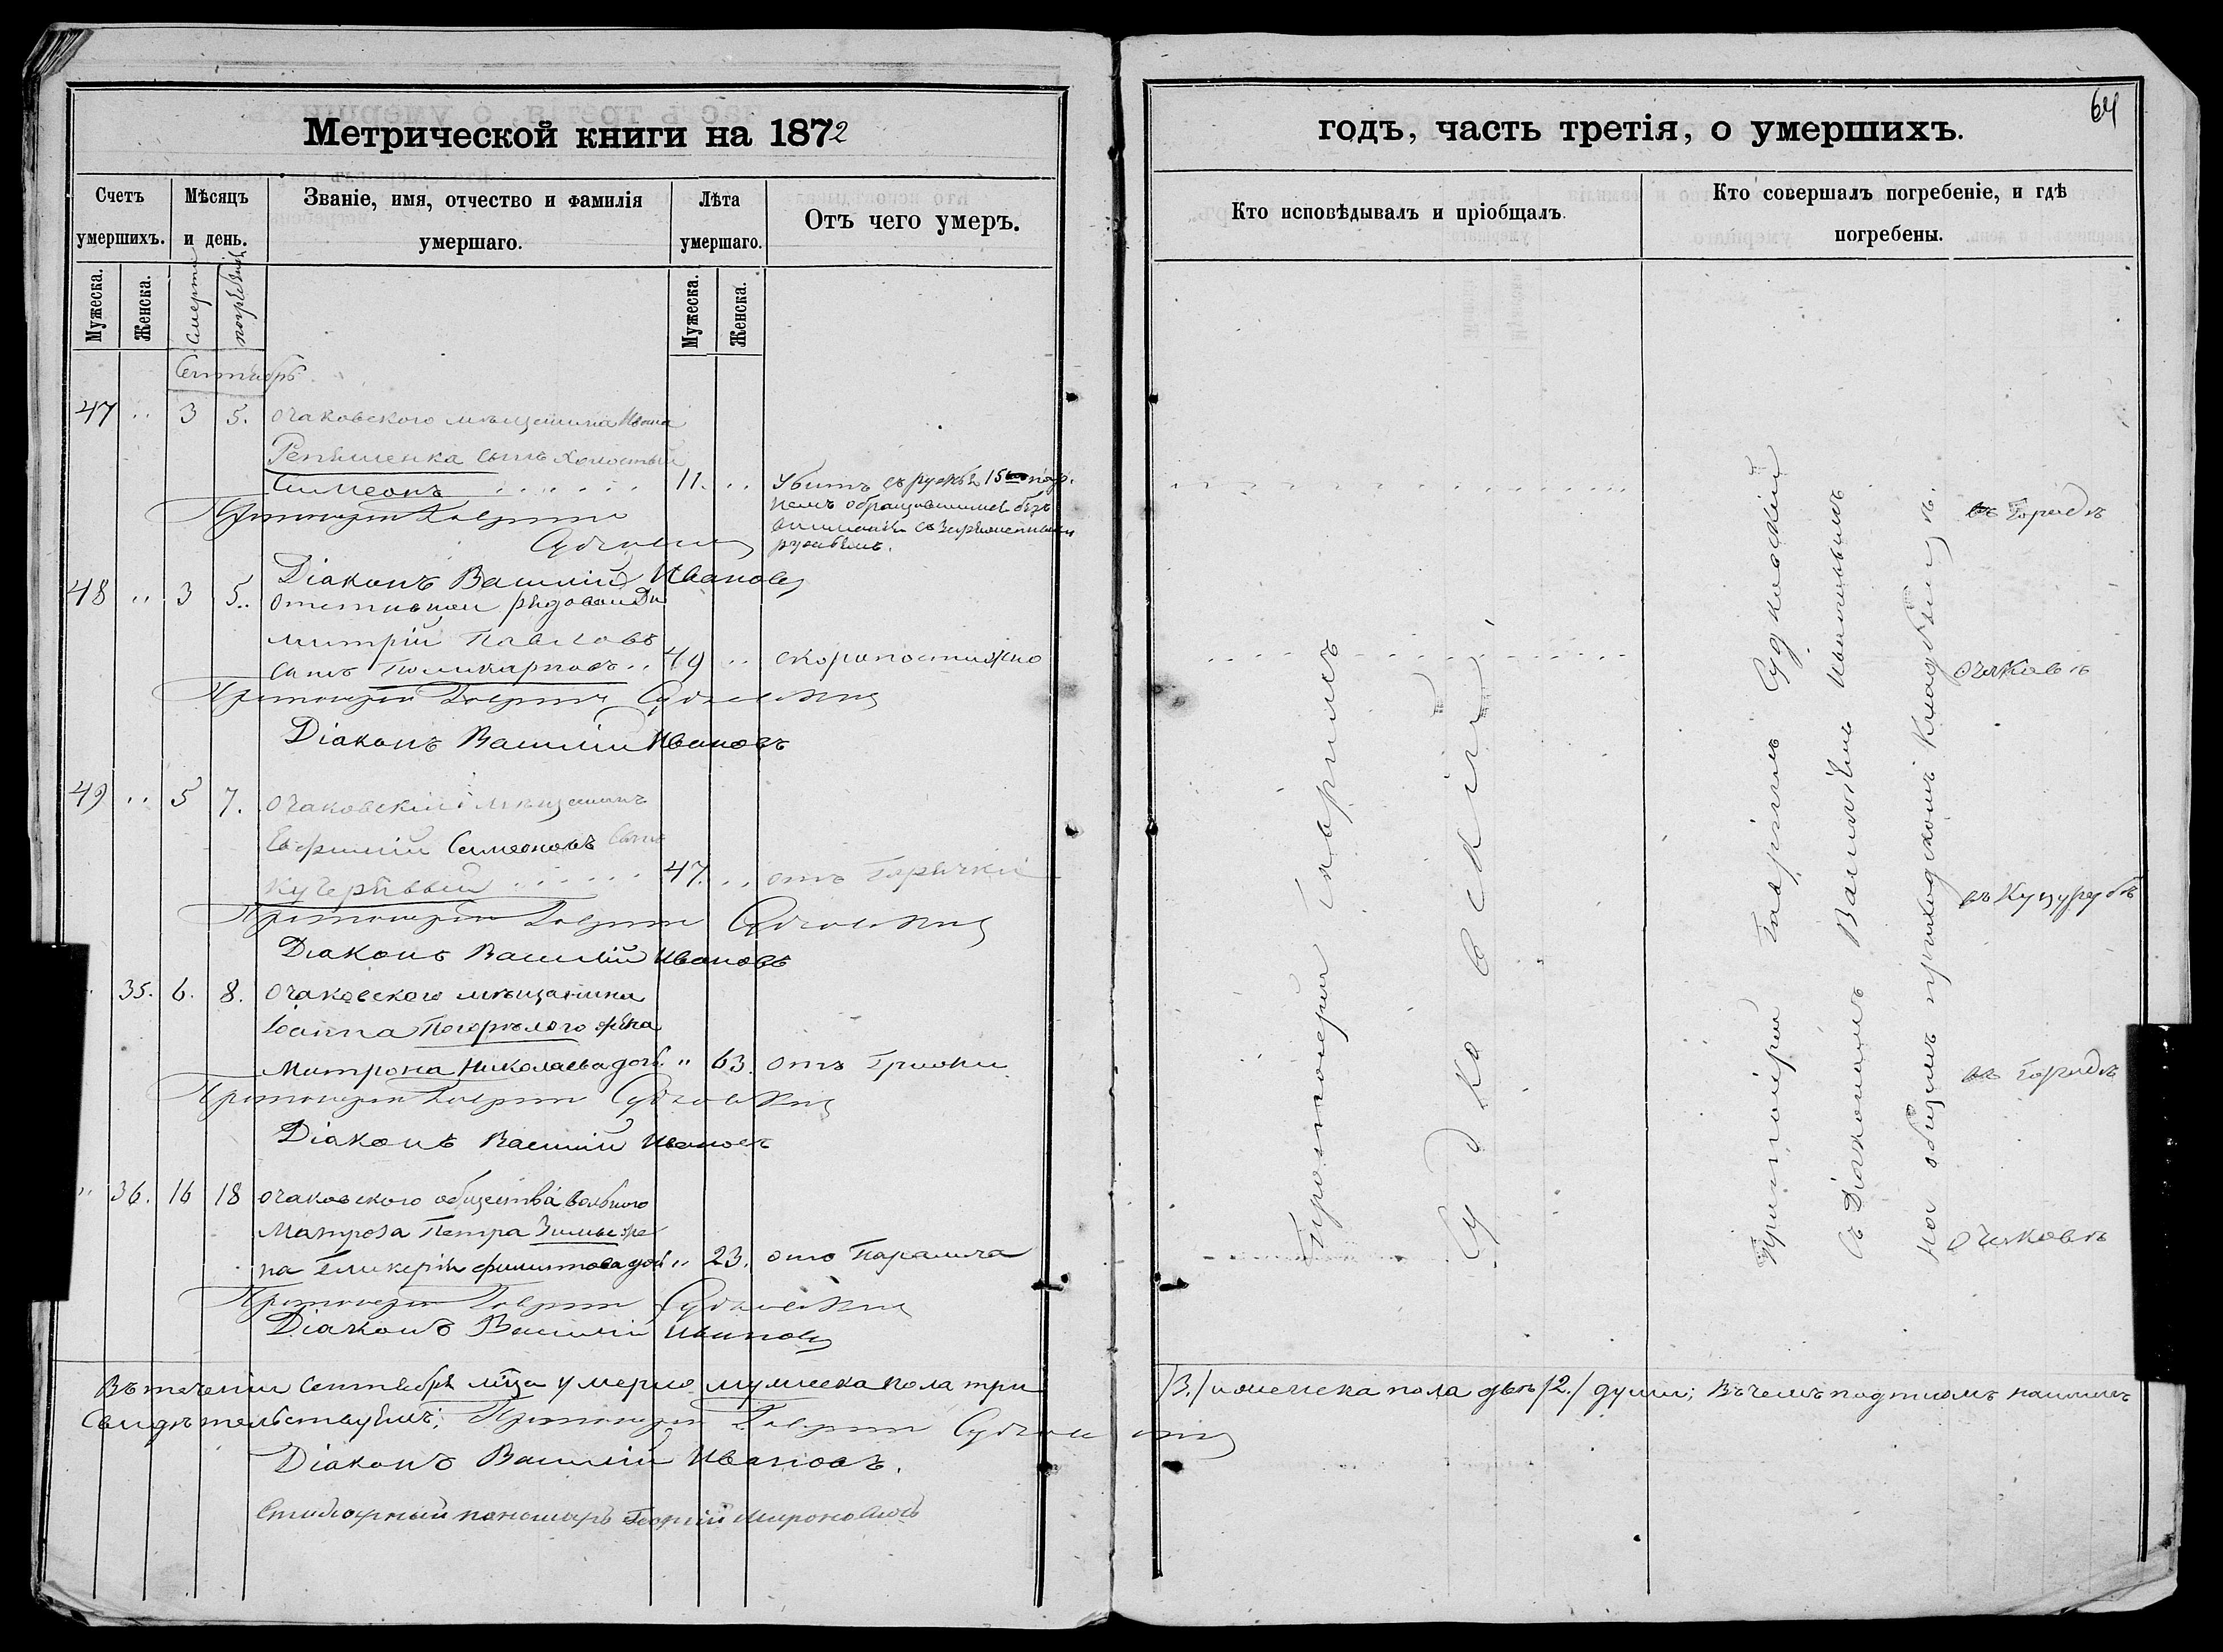 Метрической книги на 1872
Счетъ умершихъ.
Мѣсяцъ и день.
Званіе, имя, отчество и фамилія умершаго.
Лѣта умершаго.
Отъ чего умеръ.
Мужеска.
Женска.
Смерти
погребенія
Мужеска.
Женска.
Сентябрь
47 .. 3 5. Очаковского мѣщанина Ивана
Репѣшенка сынъ холостый
Симеонъ 11. .. Убитъ съ ружья 15
обращавшимся безъ
вниманія съ заряженнымъ
ружьемъ.
Протоіерей Гавріилъ
Судковскій
Діаконъ Василій Ивановъ
48 .. 3 5.. Отставной рядовой Ди
митрій Павловъ
сынъ Поликарповъ .. 49 .. скоропостижно
Протоіерей Гавріилъ Судковскій
Діаконъ Василій Ивановъ
49 .. 5 7. Очаковскій мѣщанинъ
Евфимій Симеоновъ сынъ
Кучерявый 47. .. отъ Горячки
Протоіерей Гавріилъ Судковскій
Діаконъ Василій Ивановъ
35. 6. 8. Очаковского мѣщанина
Іоанна Погорѣлого жена
Митрона Николаева дочь. " 63. отъ Грижи
Протоіерей Гавріилъ Судковскій
Діаконъ Василій Ивановъ
" 36. 16 18 Очаковского общества вольного
матроза Петра Зимы же
на Гликерія Филиппова дочь " 23. отъ Паралича
Протоіерей Гавріилъ Судковскій
Діаконъ Василій Ивановъ
Въ теченіи Сентября м͠ца умерло мужеска пола три
свидѣтельствуемъ: Протоіерей Гавріилъ Судковскій
Діаконъ Василій Ивановъ.
Стихарный пономарь Георгій
64
годъ, часть третія, о умершихъ.
Кто исповѣдывалъ и пріобщалъ.
Кто совершалъ погребеніе, и гдѣ погребены.
Протоіерей Гавріилъ
Судковскій
Протоіерей Гавріилъ Судковскій
съ Діакономъ Василіемъ Ивановымъ
на общемъ приходскомъ кладбищѣ.
въ Городѣ
Очаковѣ
въ Куцурубѣ
въ Городѣ
Очаковѣ
/3./ и женска пола двѣ /2./ души; въ чемъ подписомъ нашимъ